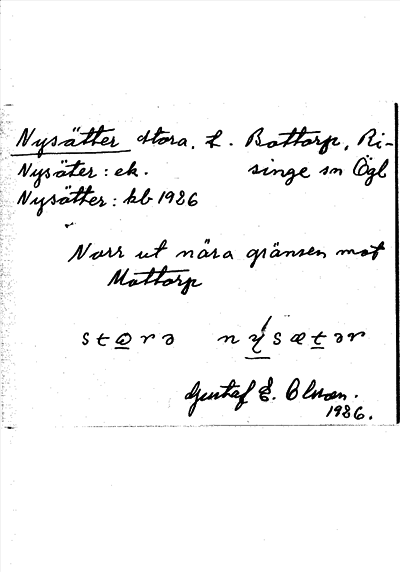 Nysätter stora, t. Bottorp, Ri-
Nysäter: ek. singe sn Ögl
Nysätter: kb 1926
Norr ut nära gränsen mot
Mottorp
stωrə nýsætər
Gustaf E. Olsson.
1926.